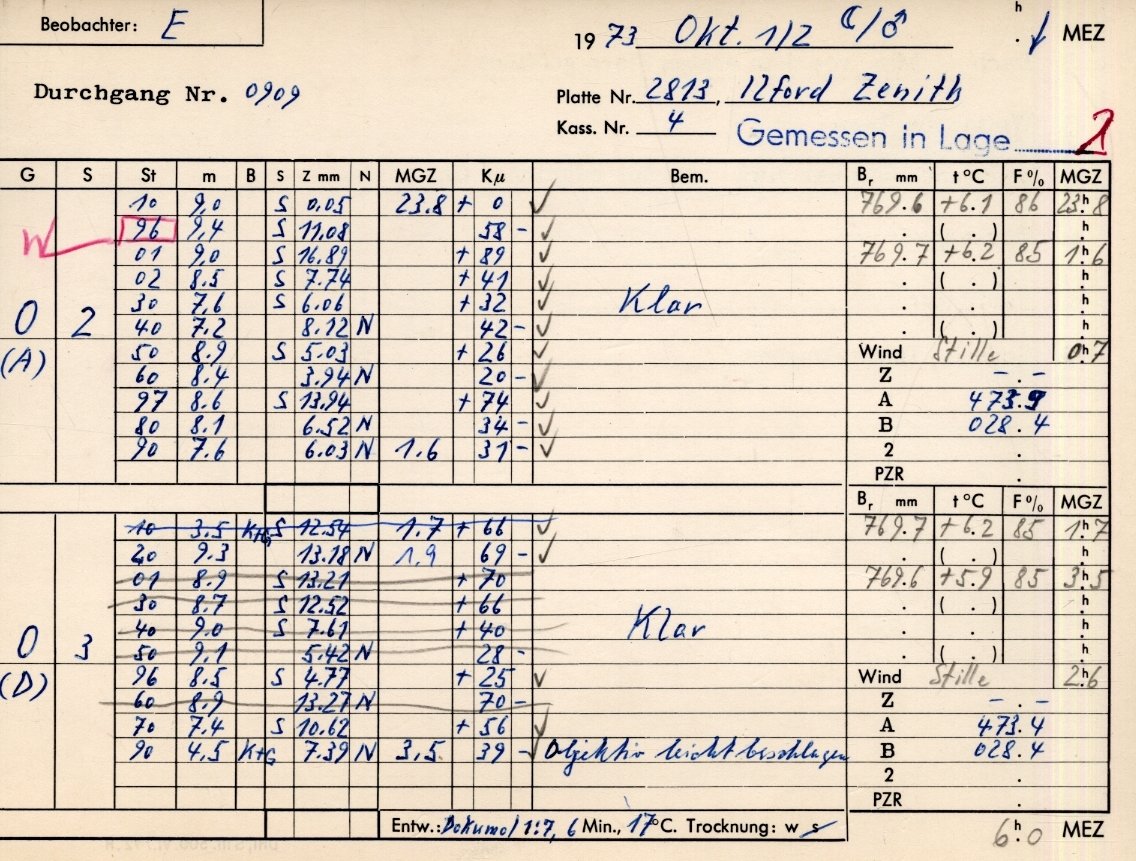 Beobachter: E
1973 Okt. 1/2 ☾/♂ h . ↓ MEZ
Durchgang Nr. 0909
Platte Nr. 2813, Ilford Zenith
Kass. Nr. 4 Gemessen in Lage 1
G S St m B S Z mm N MGZ Kμ Bem. Br mm t °C F % MGZ
10 9,0 S 0.05 23.8 + 0 ✓ 769.6 +6.1 86 23h8
W 96 9,4 S 11,08 58 - ✓ . ( . ) h .
01 9,0 S 16,89 + 89 ✓ 769.7 +6.2 85 1h6
02 8.5 S 7.74 + 41 ✓ . ( . ) h .
30 7,6 S 6.06 + 32 ✓ Klar . . h .
0 2 40 7,2 8.12 N 42 - ✓ . ( . ) h .
(A) 50 8.9 S 5.03 + 26 ✓ Wind Stille 0h7
60 8.4 3.94 N 20 - ✓ Z - . -
97 8.6 S 13,94 + 74 ✓ A 473.9
80 8.1 6.52 N 34 - ✓ B 028.4
90 7.6 6.03 N 1.6 31 - ✓ 2 .
PZR
Br mm t °C F % MGZ
10 3,5 K+G S 12.54 1.7 + 66 ✓ 769.7 +6.2 85 1h7
20 9.3 13.18 N 1.9 69 - ✓ . ( . ) h .
01 8.9 S 13.21 + 70 769.6 +5.9 85 3h5
30 8.7 S 12.52 + 66 . ( . ) h .
40 9.0 S 7.61 + 40 Klar . . h .
0 3 50 9,1 5.42 N 28 - . ( . ) h .
(D) 96 8.5 S 4.77 + 25 ✓ Wind Stille 2h6
60 8.9 13.27 N 70 - Z - . -
70 7.4 S 10.62 + 56 ✓ A 473.4
90 4,5 K+G 7.39 N 3,5 39 - ✓ Objektiv leicht beschlagen B 028.4
2 .
PZR .
Entw.: Dokumol 1:7, 6 Min., 17°C. Trocknung: w s 6h0 MEZ